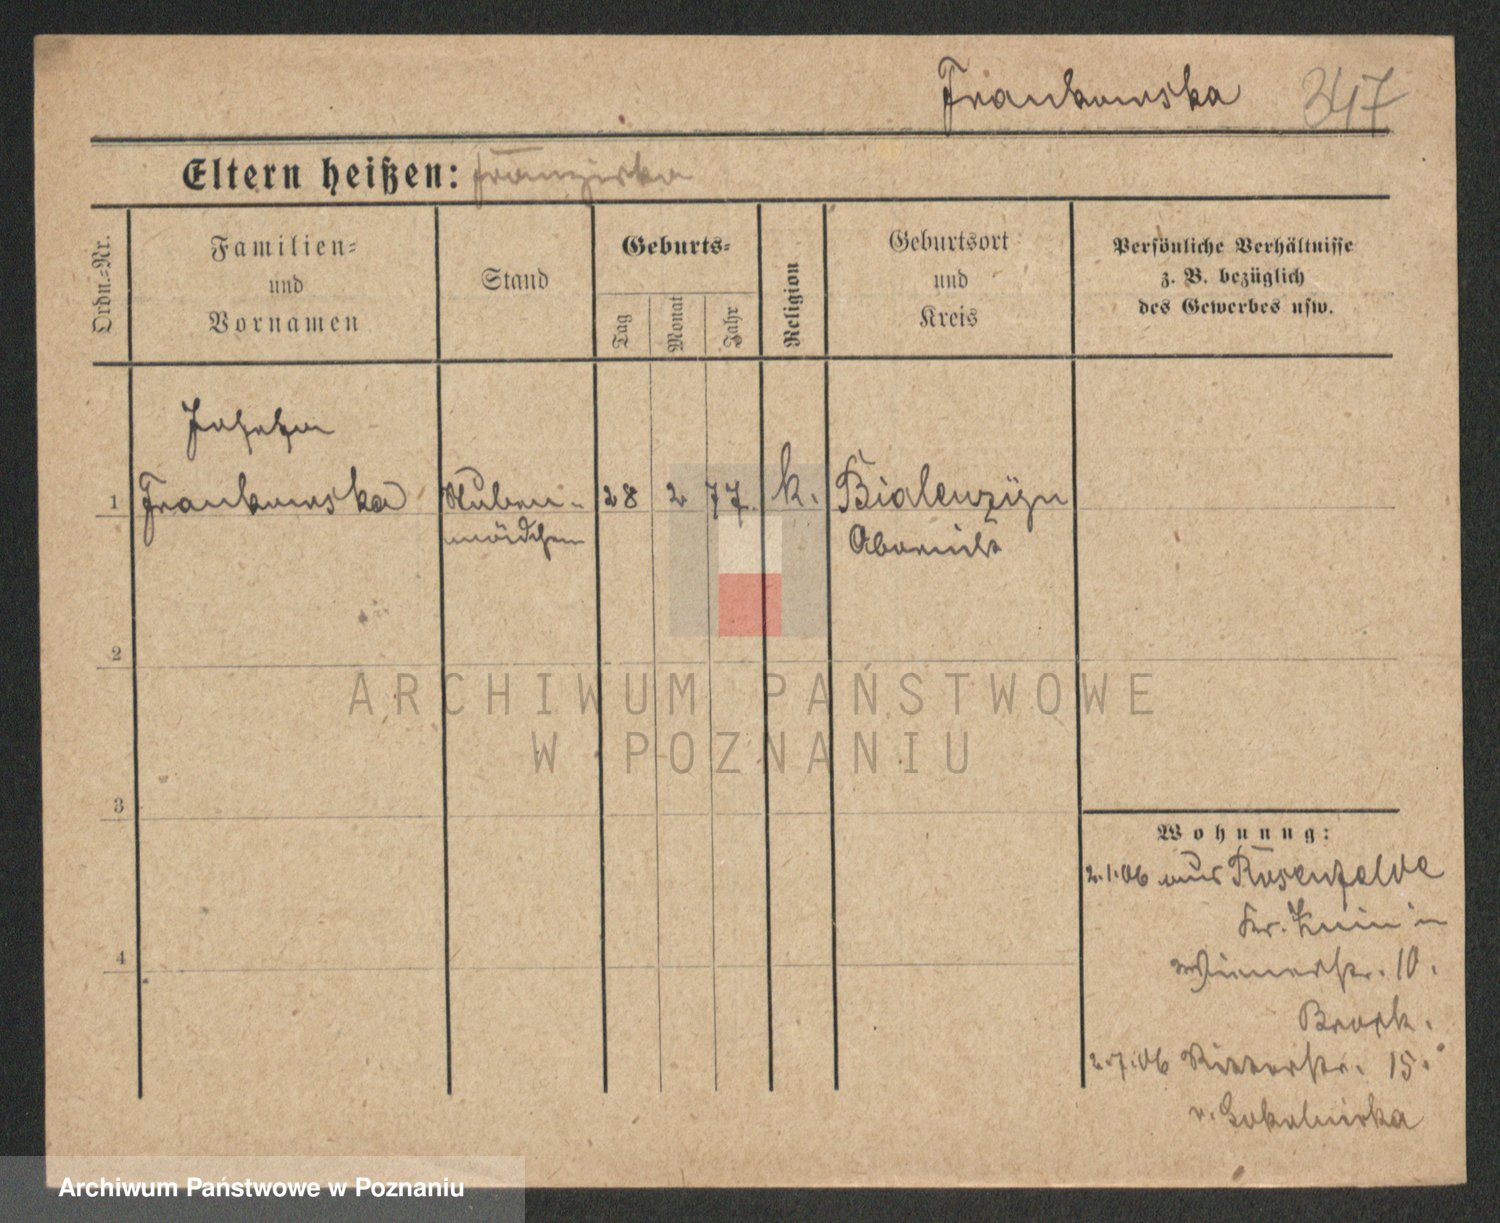 Frankowska 347
Eltern heißen: Franziska
Ordn.=Nr.
Familien=
und
Vornamen
Stand
Geburts=
Tag
Monat
Jahr
Religion
Geburtsort
und
Kreis
Persönliche Verhältnisse
z. B. bezüglich
des Gewerbes usw.
Josefa
1 Frankowska Stuben- 28 2 77. k. Bialenzyn
mädchen Obornik
2
3
4
Wohnung:
2.1.06 aus Rosenfelde
Kr. Znin in
Wienerstr. 10.
2.7.06 Ritterstr. 15.
v. Sokolnicka
ARCHIWUM PAŃSTWOWE
W POZNANIU
Archiwum Państwowe w Poznaniu